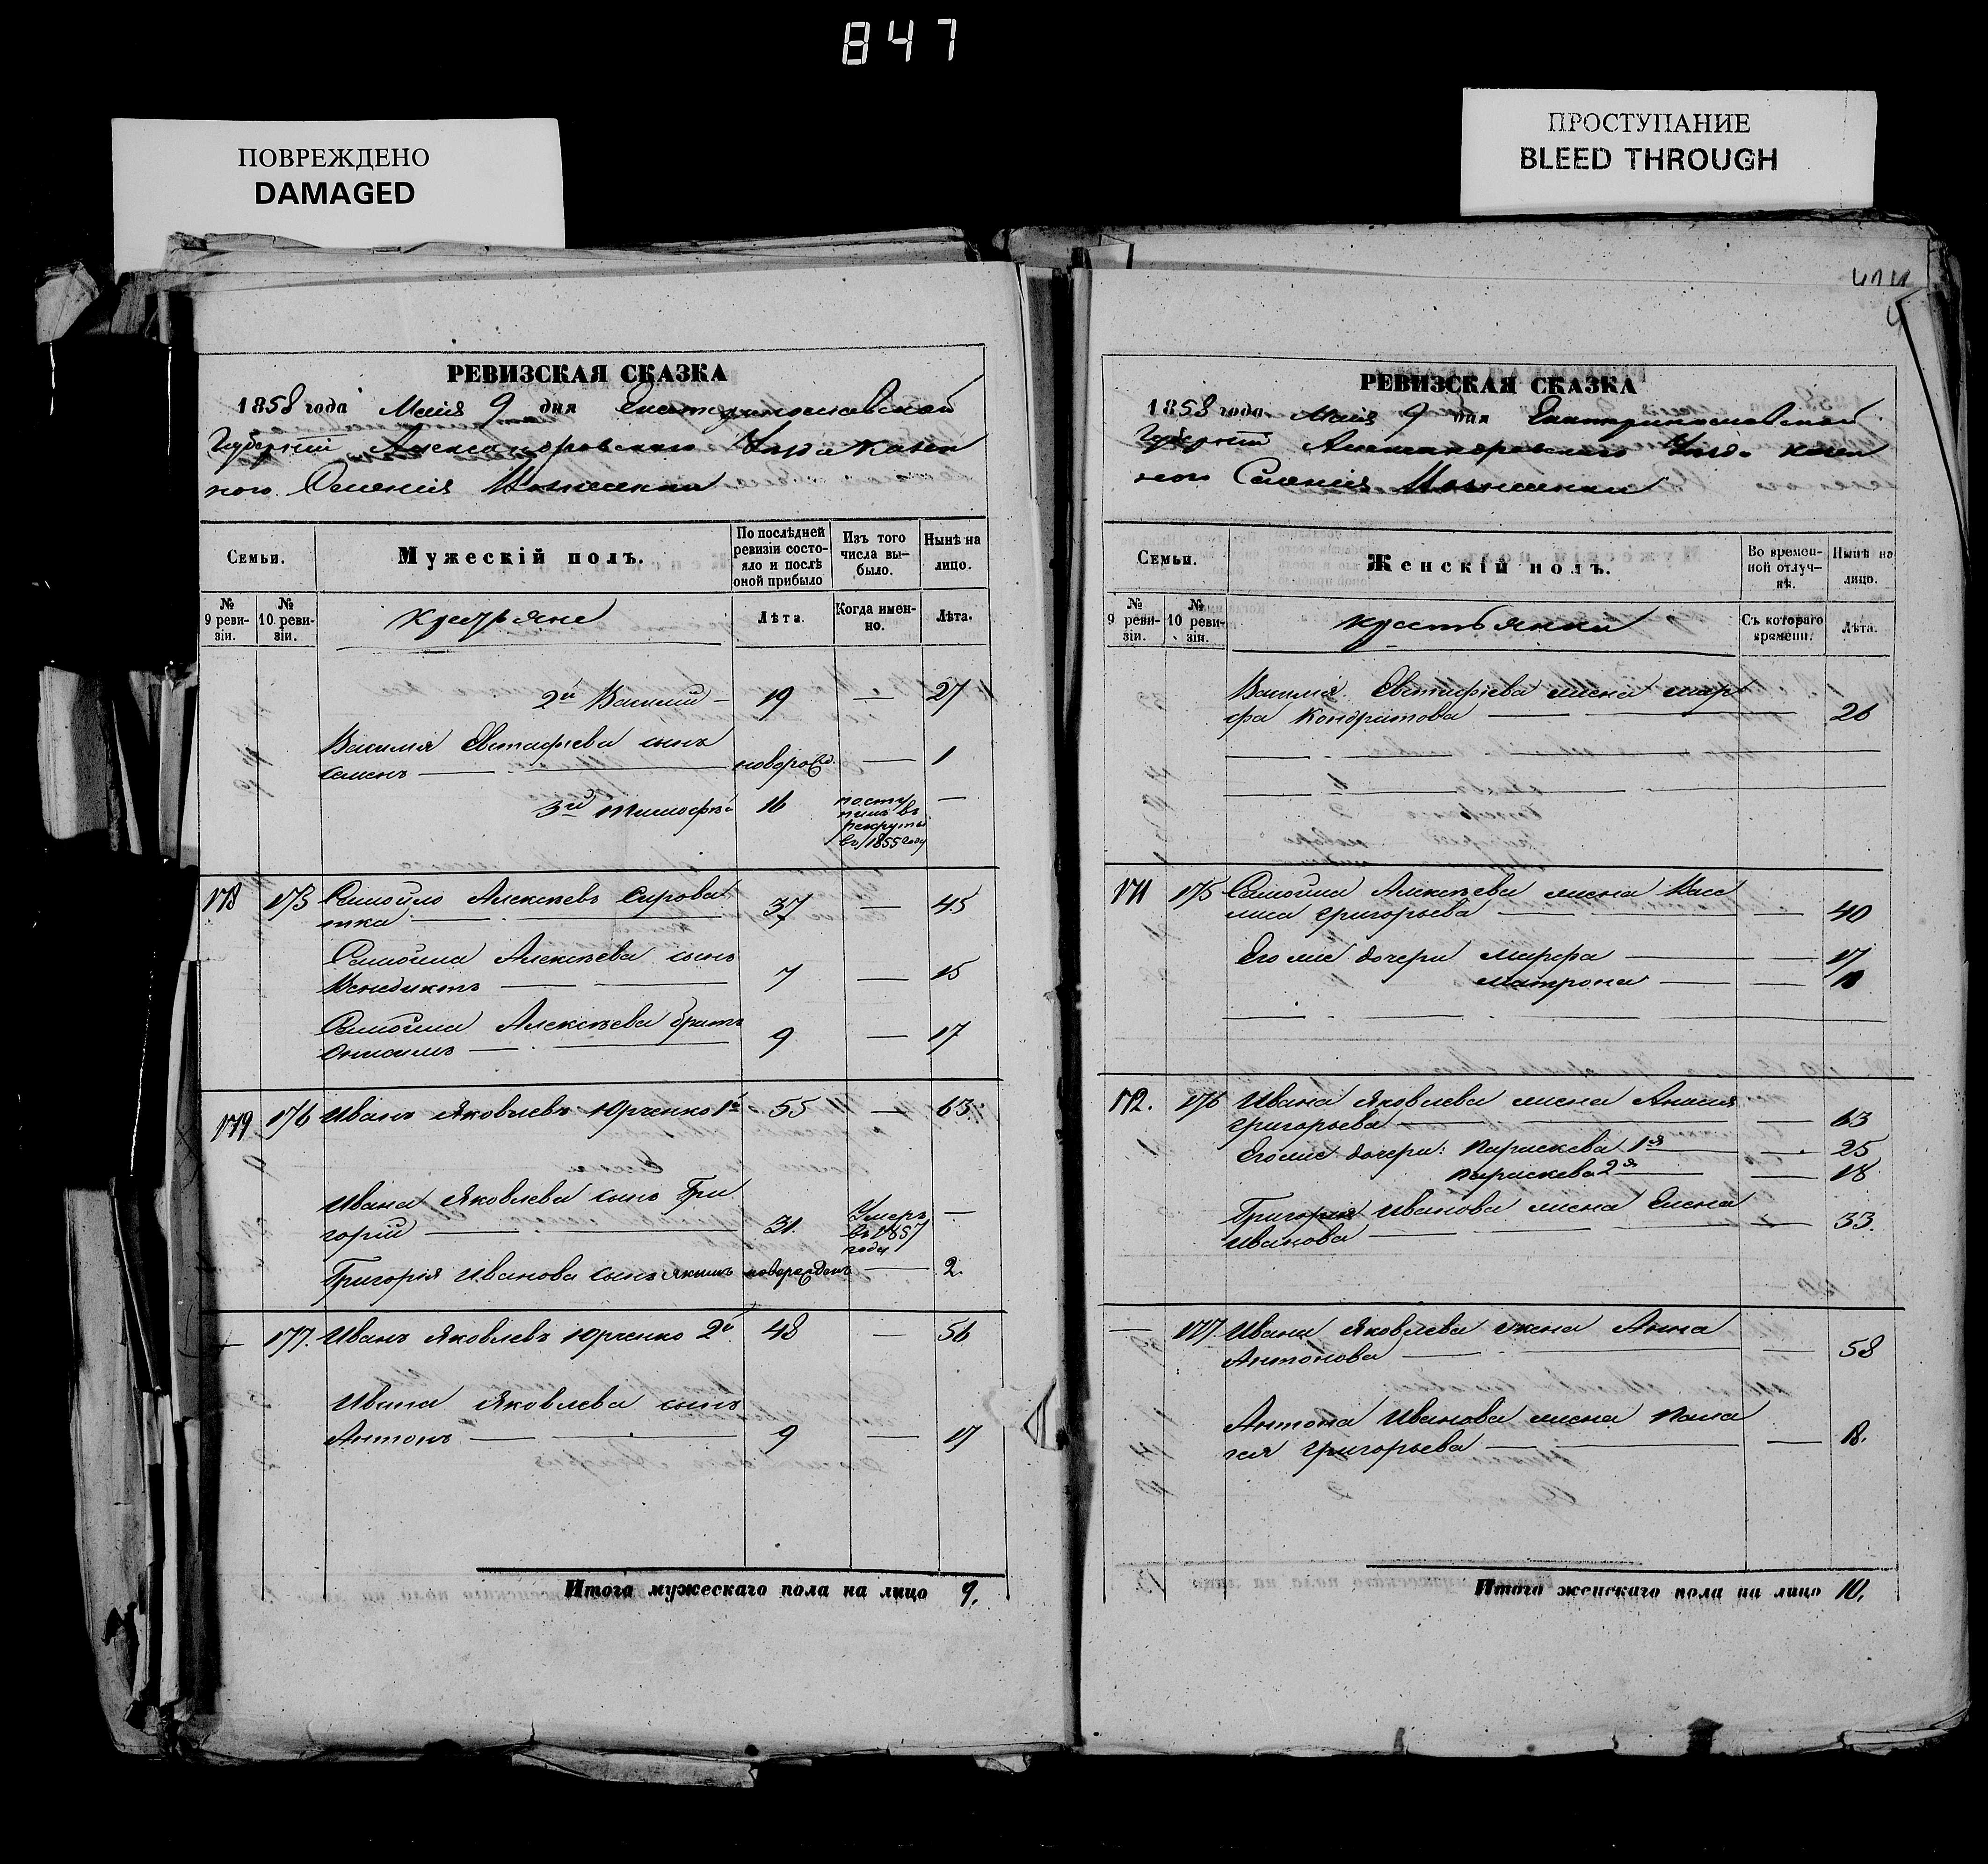 847
ПОВРЕЖДЕНО
DAMAGED
ПРОСТУПАНИЕ
BLEED THROUGH
РЕВИЗСКАЯ СКАЗКА
1858 года Маія 9 дня Екатеринославской
Губерніи Александровскаго Уезда Казен
ного Селенія
Семьи.
Мужескій полъ.
По послѣдней
ревизіи состо-
яло и послѣ
оной прибыло
Изъ того
числа вы-
было.
Нынѣ на
лицо.
№
9 реви-
зіи.
№
10 реви-
зіи.
Крестьяне
Лѣта.
Когда имен-
но.
Лѣта.
2й Василий — 19 — 27
Василія Евстафіева сынъ
Семенъ — новорожд. — 1
3й Тимофѣй 16 посту
пилъ въ
рекруты
въ 1855 году —
178 175 Самойло Алексѣевъ Сирова
тка — 37 — 45
Самойла Алексѣева сынъ
Венедиктъ — 7 — 15
Самойла Алексѣева братъ
9 — 17
179 176 Иванъ Яковлевъ Юрченко 1й 55 — 63
Ивана Яковлева сынъ Гри
горій — 31. Умеръ
въ 1857
году —
Григорія Иванова сынъ Якимъ новорожденъ — 2.
— 177. Иванъ Яковлевъ Юрченко 2й 48 — 56
Ивана Яковлева сынъ
Антонъ — 9 — 17
Итого мужескаго пола на лицо 9.
РЕВИЗСКАЯ СКАЗКА
1858 года Маія 9 дня Екатеринославской
Губерніи Александровскаго Уезда Казен
ного Селенія
Семьи.
Женскій полъ.
Во времен-
ной отлуч-
кѣ.
Нынѣ на
лицо.
№
9 реви-
зіи.
№
10 реви-
зіи.
Крестьянки
Съ котораго
времени.
Лѣта.
Василія Евстафіева жена Мар
фа Кондратова — 26
171 175 Самойла Алексѣева жена Васи
лиса Григорьева — — 40
Его же дочери Марфа — — 17
Матрона — —
172. 176 Ивана Яковлева жена
Григорьева — — 63
Его же дочери: Параскева 1я — — 25
Параскева 2я — — 18
Григорія Иванова жена Елена
Иванова — — 33.
— 177. Ивана Яковлева жена Анна
Антонова — — 58
Антона Иванова жена Пела
гея Григорьева — — 18.
Итого женскаго пола на лицо 10.